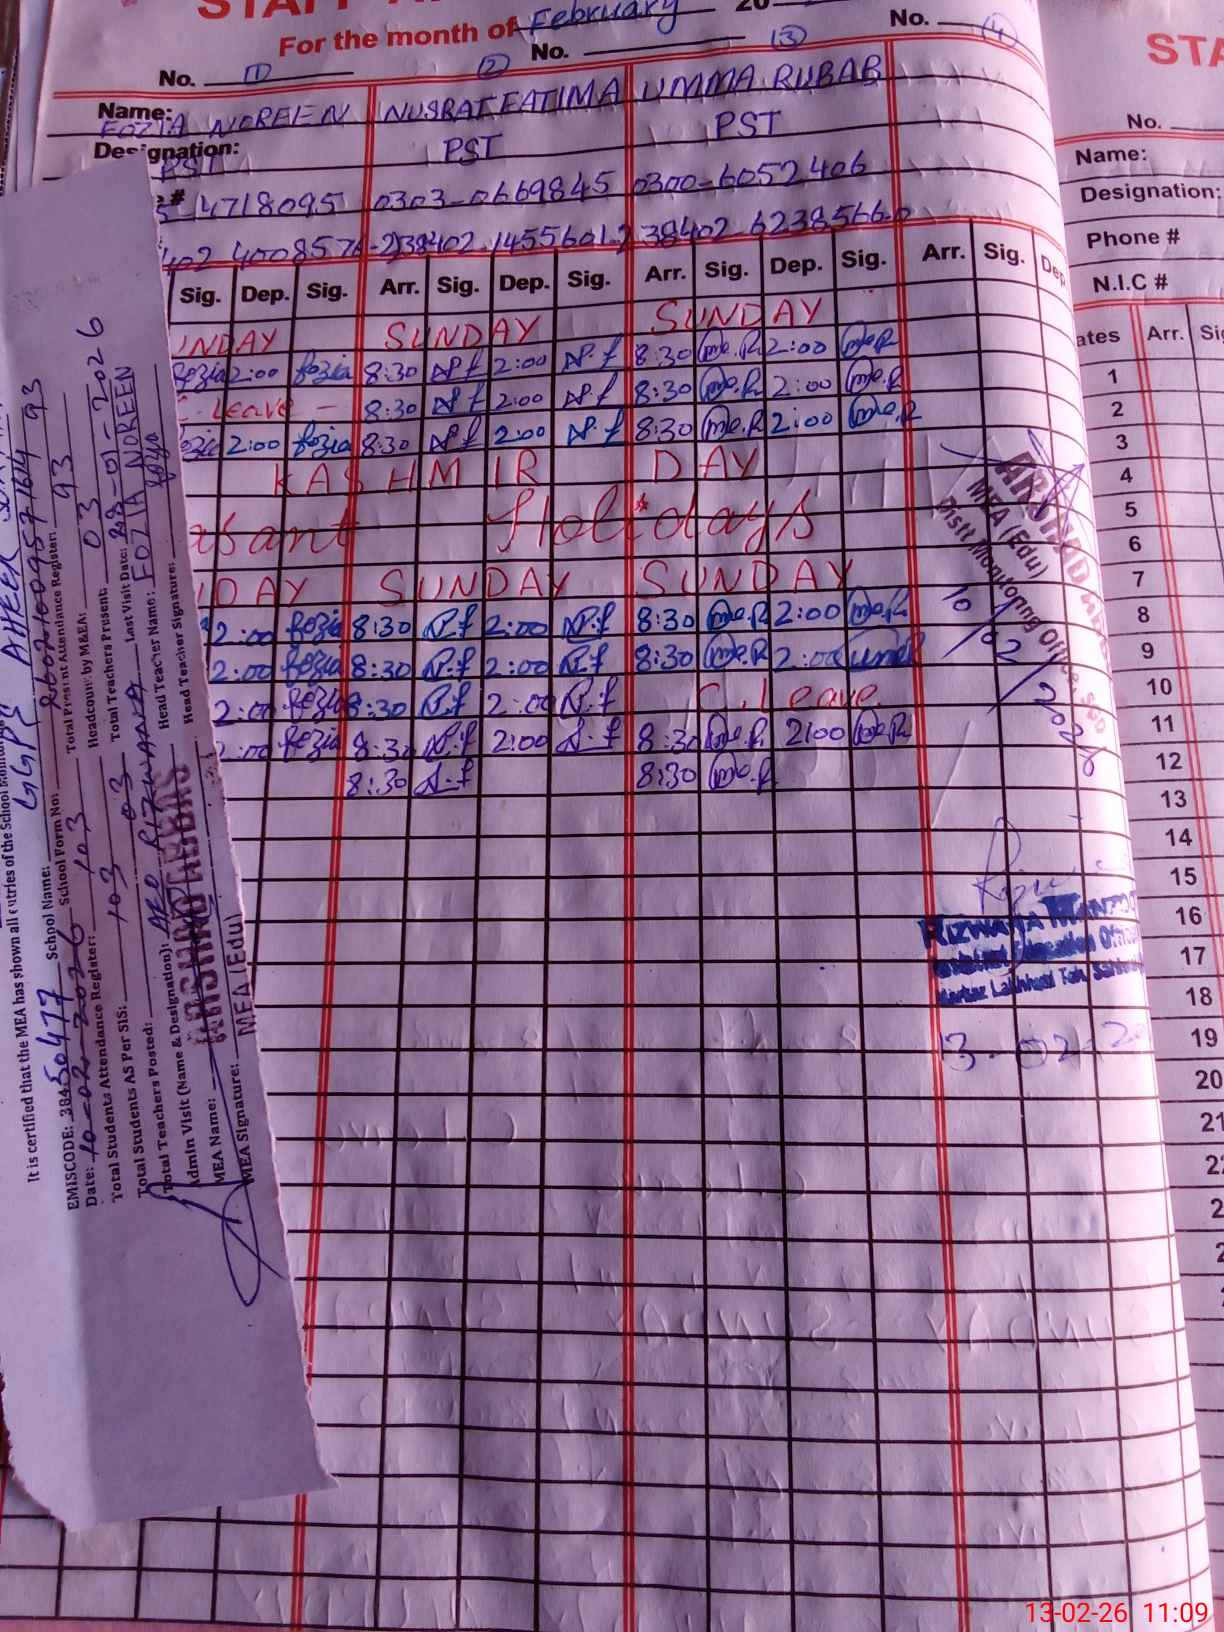 For the month of February 20
No. 1 No. 2 3 No. 4
Name: FOZIA NOREEN NUSRAT FATIMA UMMA RUBAB
Designation: PST PST PST
4718095 0303-0669845 0300-6052406
402 4508576-2 38402-1455601-2 38402-6238566-0
Sig. Dep. Sig. Arr. Sig. Dep. Sig. Arr. Sig. Dep. Sig. Arr. Sig. Dep
UNDAY SUNDAY SUNDAY
fozia 2:00 fozia 8:30 N.f 2:00 N.f 8:30 me.R 2:00 me.R
C. Leave - 8:30 N.f 2:00 N.f 8:30 me.R 2:00 me.R
fozia 2:00 fozia 8:30 N.f 2:00 N.f 8:30 me.R 2:00 me.R
KASHMIR DAY
asant Holidays
NDAY SUNDAY SUNDAY
2:00 fozia 8:30 N.f 2:00 N.f 8:30 me.R 2:00 me.R
2:00 fozia 8:30 N.f 2:00 N.f 8:30 me.R 2:00
2:00 fozia 8:30 N.f 2:00 N.f C. Leave.
2:00 fozia 8:30 N.f 2:00 N.f 8:30 me.R 2:00 me.R
8:30 N.f 8:30 me.R
ARSHAD
MEA (Edu)
Distt Monitoring Office
10/02/2026
RIZWANA
Assistant Education Officer
3-02-20
STA
No.
Name:
Designation:
Phone #
N.I.C #
ates Arr. Si
1
2
3
4
5
6
7
8
9
10
11
12
13
14
15
16
17
18
19
20
21
It is certified that the MEA has shown all entries of the School
EMISCODE: 38450477 School Name: GGPS
Date: 10-02-2026 School Form No:
Total Students Attendance Register: 103 Total Present Attendance Register: 93
Total Students AS Per SIS: 103 Headcount by M&EA: 93
Total Teachers Posted: 03 Total Teachers Present: 03
Admin Visit (Name & Designation): AEO RIZWANA Last Visit Date: 28-01-2026
MEA Name: ARSHAD ABBAS Head Teacher Name: FOZIA NOREEN
MEA Signature: MEA (Edu) Head Teacher Signature: fozia
13-02-26 11:09